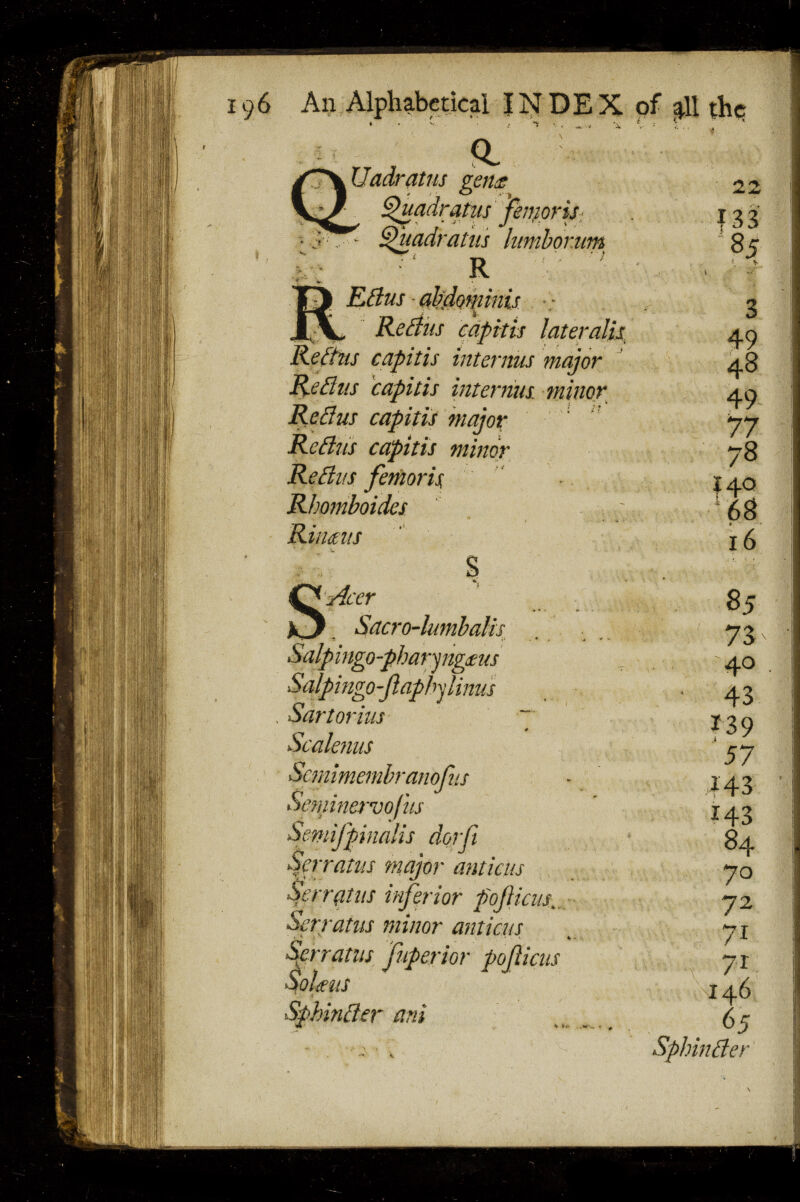 196 An Alphabetical INDEX of all the
Q
QUadratus genæ 22
Quadratus femoris 133
Quadratus lumborum 85
R
REctus abdominis 3
Rectus capitis lateralis 49
Rectus capitis internus major 48
Rectus capitis internus minor 49
Rectus capitis major 77
Rectus capitis minor 78
Rectus femoris 140
Rhomboides 68
Rinæus 16
S
SAcer 85
Sacro-lumbalis 73
Salpingo-pharyngæus 40
Salpingo-ſtaphylinus 43
Sartorius 139
Scalenus 57
Semimembranoſus 143
Seminervoſus 143
Semiſpinalis dorſi 84
Serratus major anticus 70
Serratus inferior poſticus. 72
Serratus minor anticus 71
Serratus ſuperior poſticus 71
Solæus 146
Sphincter ani 65
Sphincter